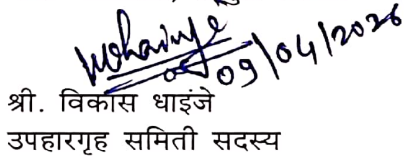 09/04/2026
श्री. विकास धाइंजे
उपहारगृह समिती सदस्य